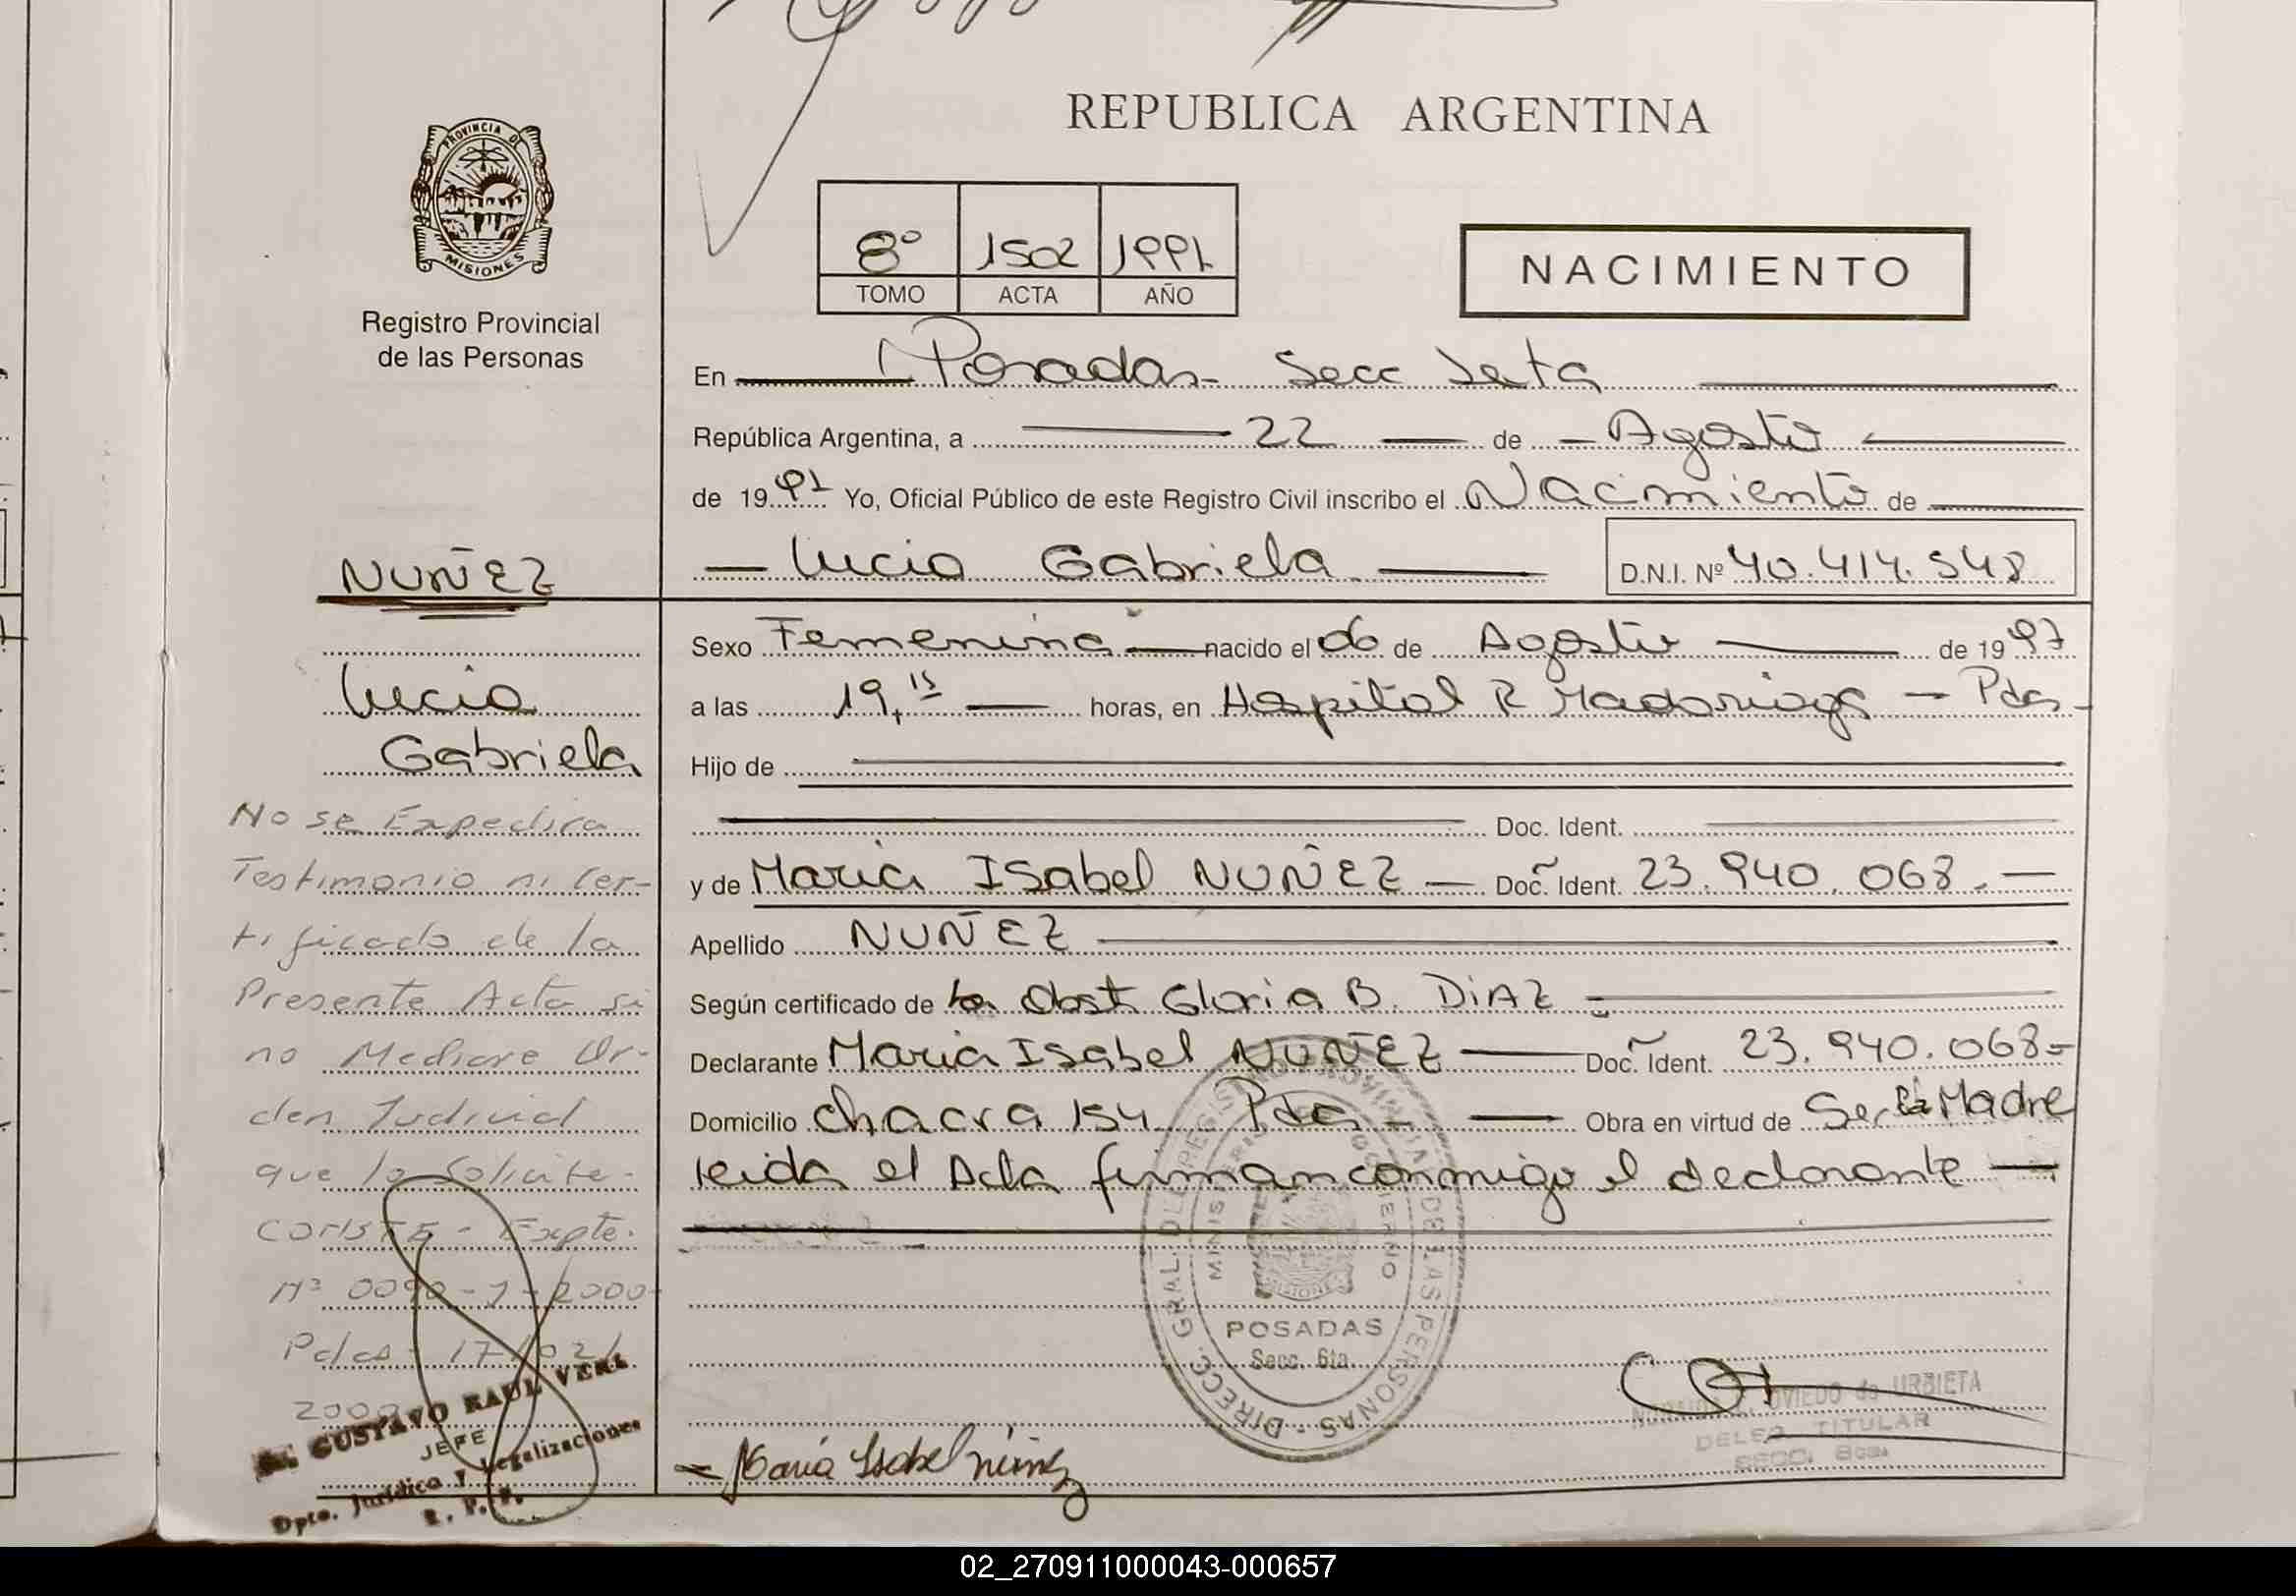 REPUBLICA ARGENTINA
PROVINCIA DE
MISIONES
Registro Provincial
de las Personas
8º 1502 1997
TOMO ACTA AÑO
NACIMIENTO
En Posadas - Secc Sexta
República Argentina, a 22 de Agosto
de 1997 Yo, Oficial Público de este Registro Civil inscribo el Nacimiento de
Lucia Gabriela D.N.I. Nº 40.414.548
NUÑEZ
Lucia
Gabriela
No se Expedira
Testimonio ni Cer-
tificado de la
Presente Acta si
no Mediare Or-
den Judicial
que lo Solicite -
CONSTE - Expte.
Nº 0090 - J - 2000-
Pdas - 17/02/
2000
GUSTAVO RAUL VERA
JEFE
Dpto. Jurídico y Legalizaciones
R. P. P.
Sexo Femenina nacido el 06 de Agosto de 1997
a las 19,15 horas, en Hospital R Madariaga - Pdas-
Hijo de
Doc. Ident.
y de Maria ISabel NUÑEZ - Doc. Ident. 23.940.068.-
Apellido NUÑEZ
Según certificado de la Obst. Gloria B. DIAZ -
Declarante Maria ISabel NUÑEZ Doc. Ident. 23.940.068-
Domicilio chacra 154 Pdas - Obra en virtud de Ser La Madre
leida el Acta firman conmigo el declarante
DIRECC. GRAL. DEL REGISTRO PROVINCIAL DE LAS PERSONAS -
POSADAS
Secc. 6ta
María Isabel núñez
OVIEDO de URBIETA
DELEG. TITULAR
02_270911000043-000657